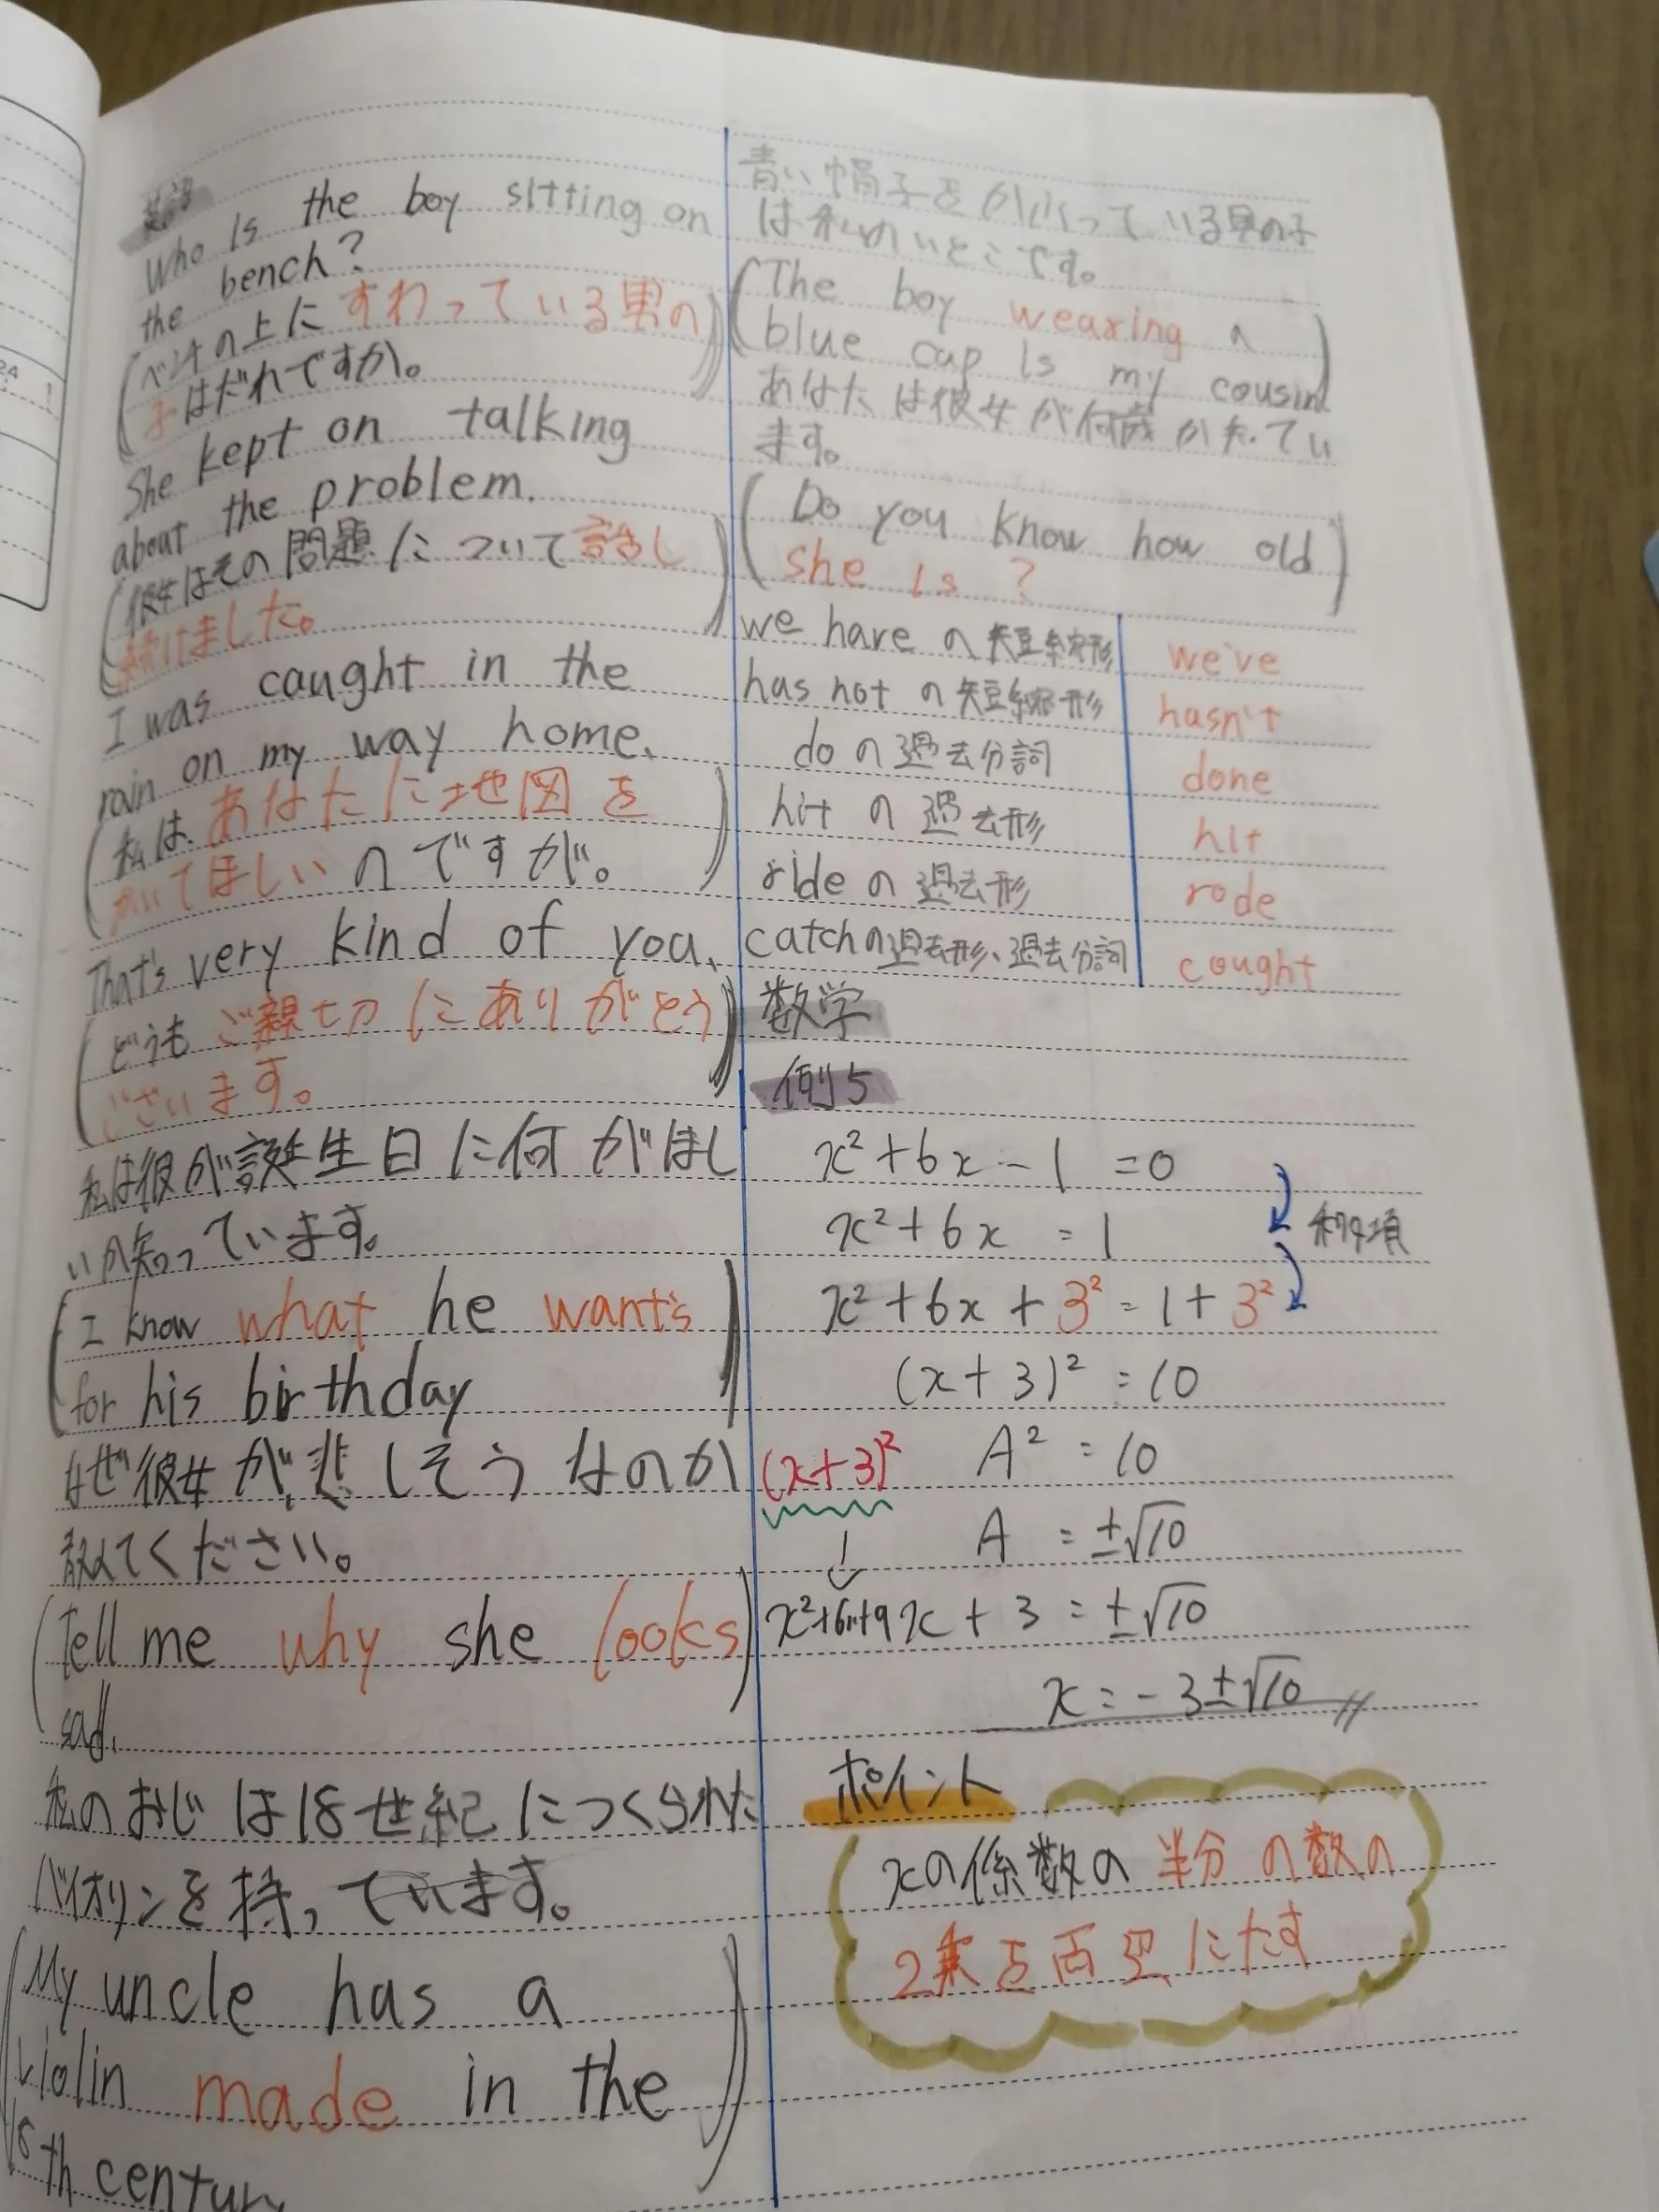 英語
Who is the boy sitting on
the bench?
ベンチの上にすわっている男の
子はだれですか。
She kept on talking
about the problem.
彼女はその問題について話し
続けました。
I was caught in the
rain on my way home.
私は、あなたに地図を
かいてほしいのですが。
That's very kind of you.
どうもご親切にありがとう
ございます。
私は彼が誕生日に何がほし
いか知っています。
I know what he wants
for his birthday
なぜ彼女が悲しそうなのか
教えてください。
Tell me why she looks
sad.
私のおじは18世紀につくられた
バイオリンを持っています。
My uncle has a
violin made in the
18th century
青い帽子をかぶっている男の子
は私のいとこです。
The boy wearing a
blue cap is my cousin
あなたは彼女が何歳か知ってい
ます。
Do you know how old
she is ?
we have の短縮形 we've
has not の短縮形 hasn't
do の過去分詞 done
hit の過去形 hit
ride の過去形 rode
catchの過去形、過去分詞 cought
数学
例5
x²+6x-1=0
x²+6x=1 移項
x²+6x+3²=1+3²
(x+3)²=10
(x+3)² A²=10
A=±√10
x²+6x+9 x+3=±√10
x=-3±√10
ポイント
xの係数の半分の数の
2乗を両辺にたす